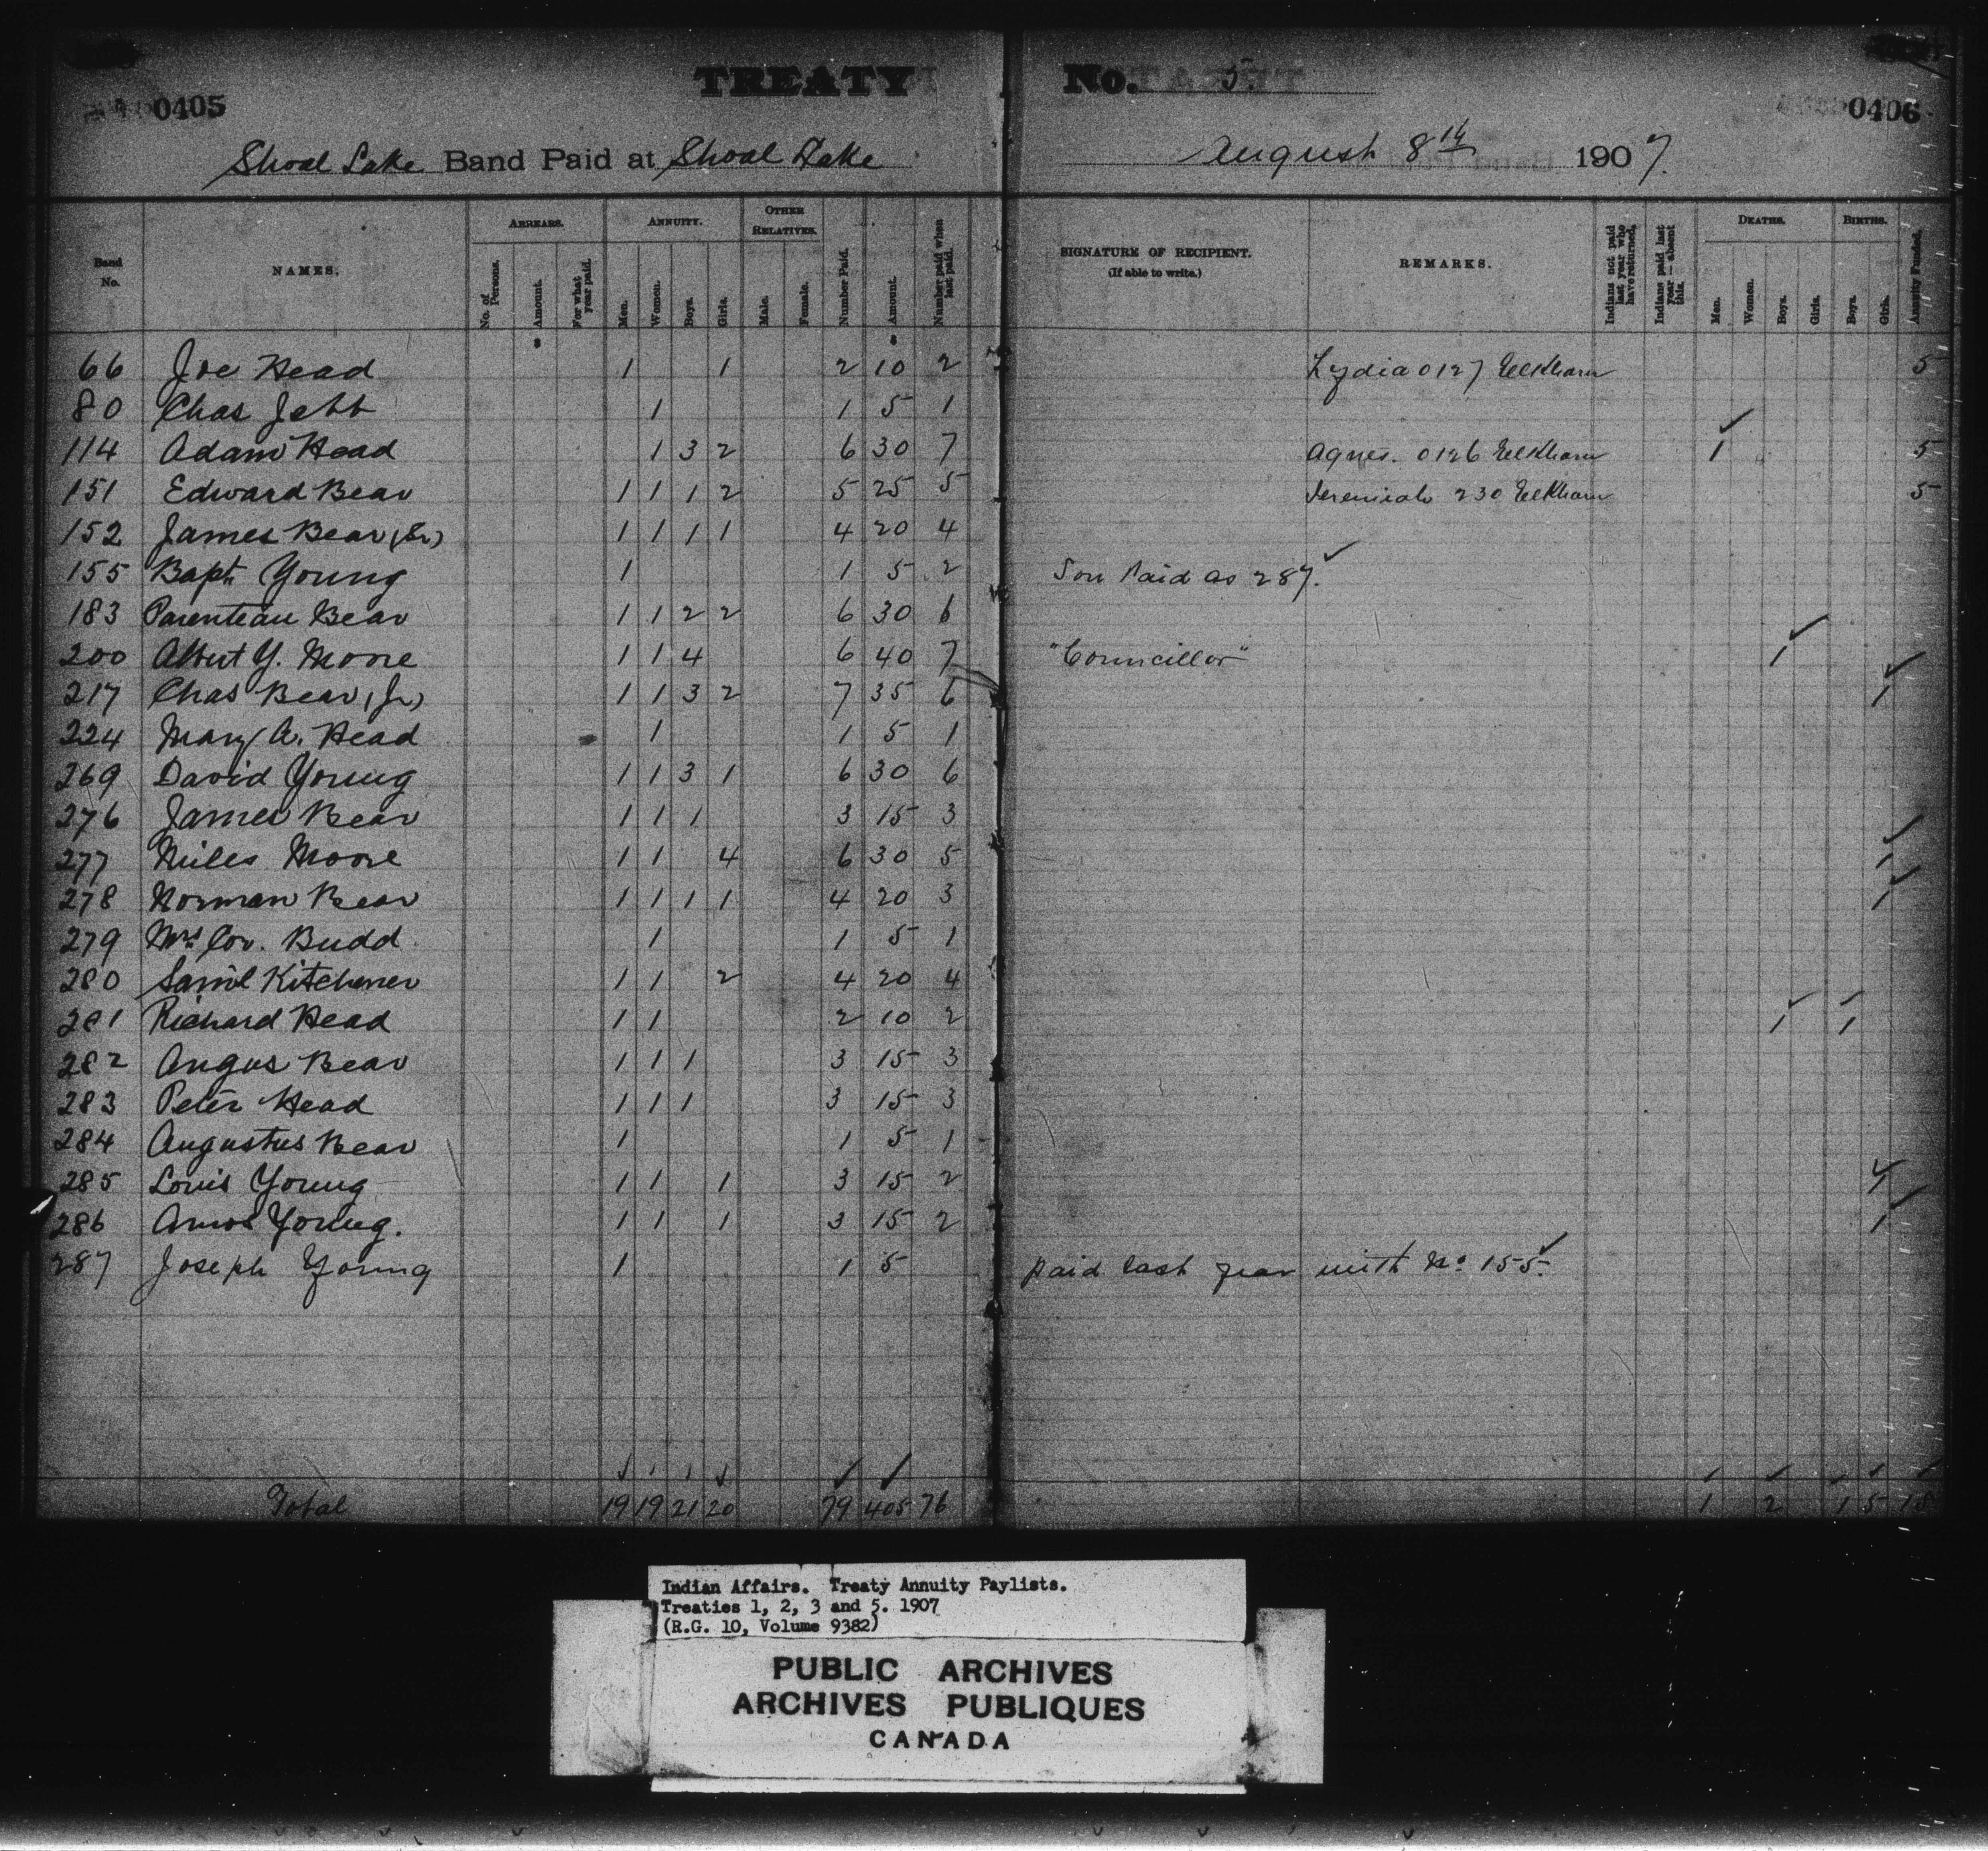 TREATY No. 5.
0405 0406
Shoal Lake Band Paid at Shoal Lake August 8th 1907.
Band No. NAMES. ARREARS. No. of Persons. Amount. For what year paid. ANNUITY. Men. Women. Boys. Girls. OTHER RELATIVES. Male. Female. Number Paid. Amount. Number paid when last paid. SIGNATURE OF RECIPIENT. (If able to write.) REMARKS. Indians not paid last year who have returned. Indians paid last year — absent this. DEATHS. Men. Women. Boys. Girls. BIRTHS. Boys. Girls. Annuity Funded.
66 Joe Head 1 1 2 10 2 Lydia 0127 Elkhorn 5
80 Chas Jebb 1 1 5 1
114 Adam Head 1 3 2 6 30 7 Agnes. 0126 Elkhorn 1 5
151 Edward Bear 1 1 1 2 5 25 5 Jeremiah 230 Elkhorn 5
152 James Bear (Sr) 1 1 1 1 4 20 4
155 Bapt. Young 1 1 5 2 Son Paid as 287.
183 Parenteau Bear 1 1 2 2 6 30 6
200 Albert Y. Moore 1 1 4 6 40 7 "Councillor" 1
217 Chas Bear (Jr) 1 1 3 2 7 35 6 1
224 Mary A. Head 1 1 5 1
269 David Young 1 1 3 1 6 30 6
276 James Bear 1 1 1 3 15 3
277 Miles Moore 1 1 4 6 30 5 1
278 Norman Bear 1 1 1 1 4 20 3 1
279 Mrs Cor. Budd 1 1 5 1
280 Saml Kitchener 1 1 2 4 20 4
281 Richard Head 1 1 2 10 2 1 1
282 Angus Bear 1 1 1 3 15 3
283 Peter Head 1 1 1 3 15 3
284 Augustus Bear 1 1 5 1
285 Louis Young 1 1 1 3 15 2 1
286 Amos Young. 1 1 1 3 15 2 1
287 Joseph Young 1 1 5 paid last year with No 155.
Total 19 19 21 20 79 405 76 1 2 1 5 15
Indian Affairs. Treaty Annuity Paylists.
Treaties 1, 2, 3 and 5. 1907
(R.G. 10, Volume 9382)
PUBLIC ARCHIVES
ARCHIVES PUBLIQUES
CANADA